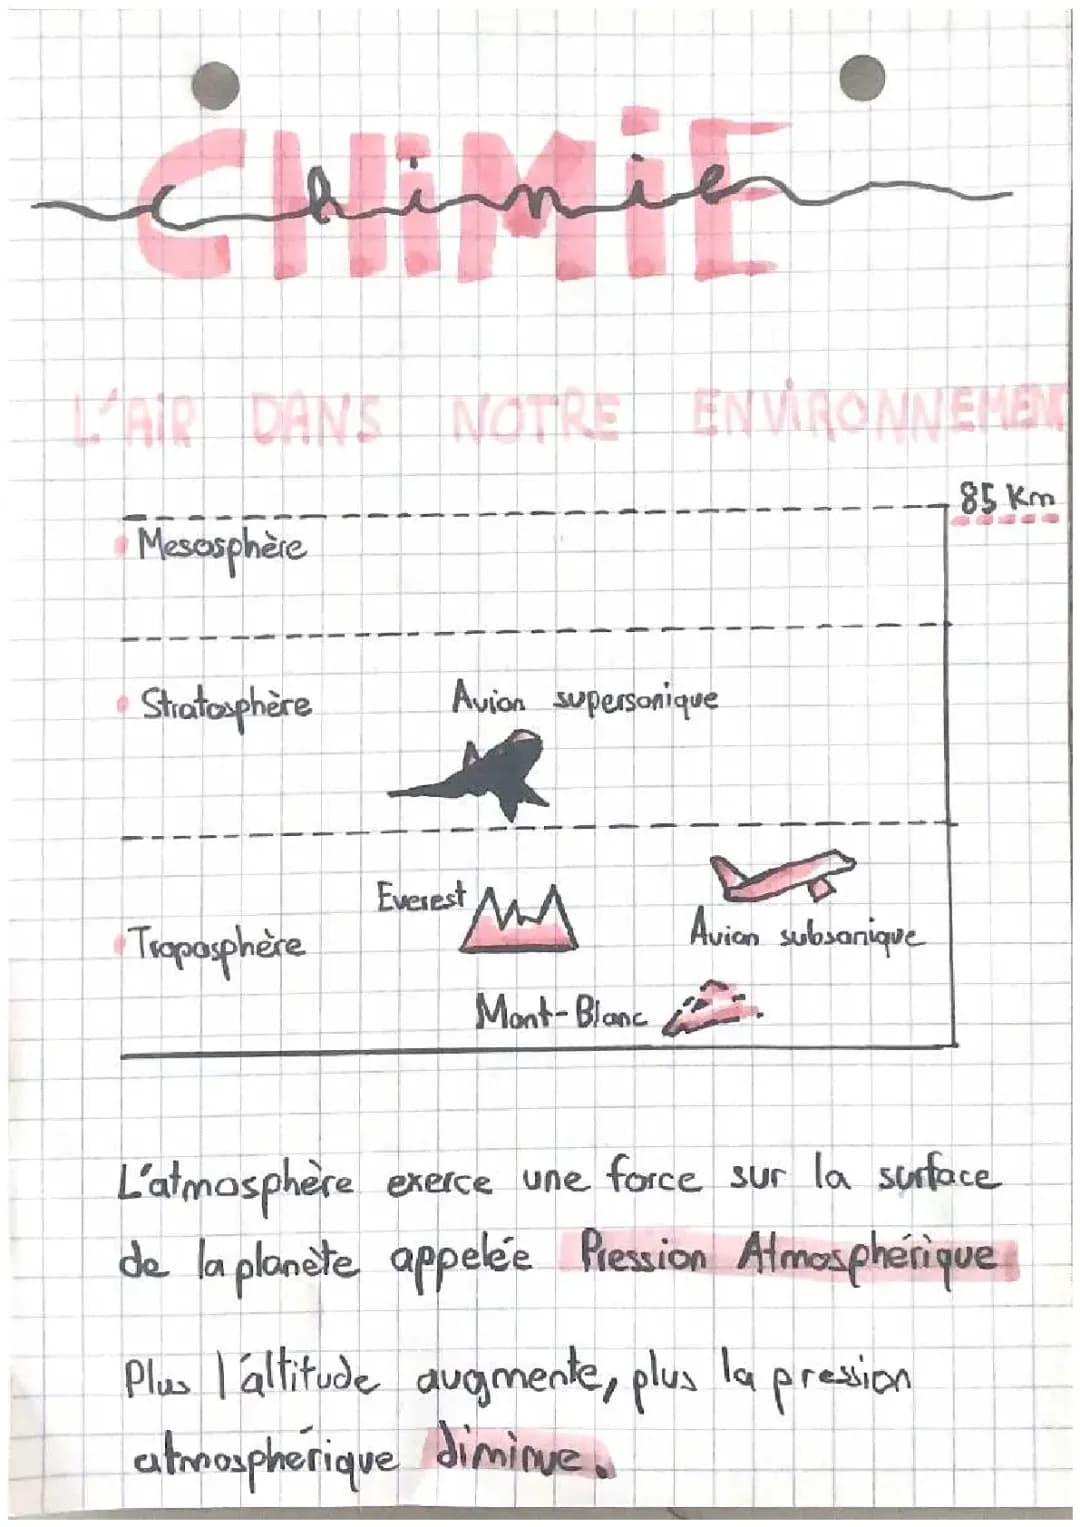 CHIMIE
chimie
L'AIR DANS NOTRE ENVIRONNEMENT
85 Km
Mesosphère
Stratosphère
Avion supersonique
Everest
Troposphère
Avion subsonique
Mont-Blanc
L'atmosphère exerce une force sur la surface
de la planète appelée Pression Atmosphérique
Plus l'altitude augmente, plus la pression
atmosphérique diminue.